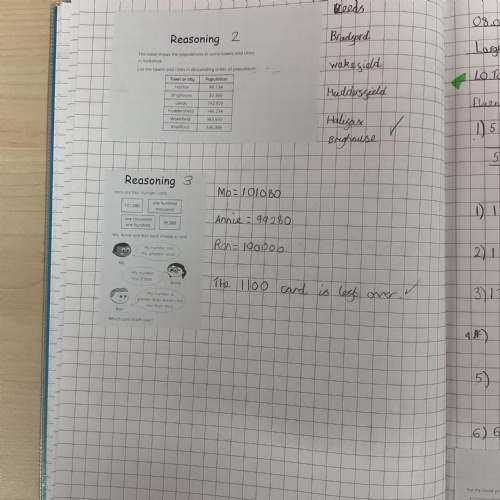 Reasoning 2
The table shows the populations in some towns and cities
in Yorkshire.
List the towns and cities in descending order of population.
Town or city Population
Halifax 88,134
Brighouse 32,360
Leeds 752,925
Huddersfield
Wakefield
Bradford
Leeds
Bradford
Wakefield
Huddersfield
Halifax
Brighouse
Reasoning 3
Here are four number cards.
one hundred
thousand
one thousand
one hundred
99,280
Mo, Annie and Ron each choose a card.
My number has
the greatest value
Mo
My number
Annie
My number is
Ron
Which card is left over?
Mo = 101080
Annie = 99280
Ron = 100000
The 1100 card is left over.
08.0
Larg
L.O. To
Fluen
1) 5
5
1) 1
2) 1
3) 1
5)
6) 6